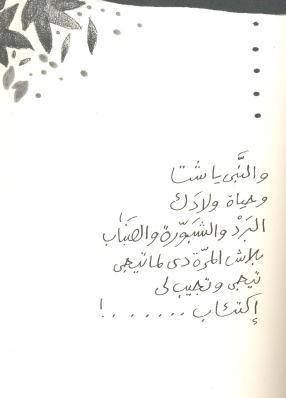 والنَّبى يا شتا
وحياة ولادك
البَرْد والشبّورة والضباب
بلاش المرّة دى لما تيجى
تيجى وتجيب لى
إكتئاب .......!